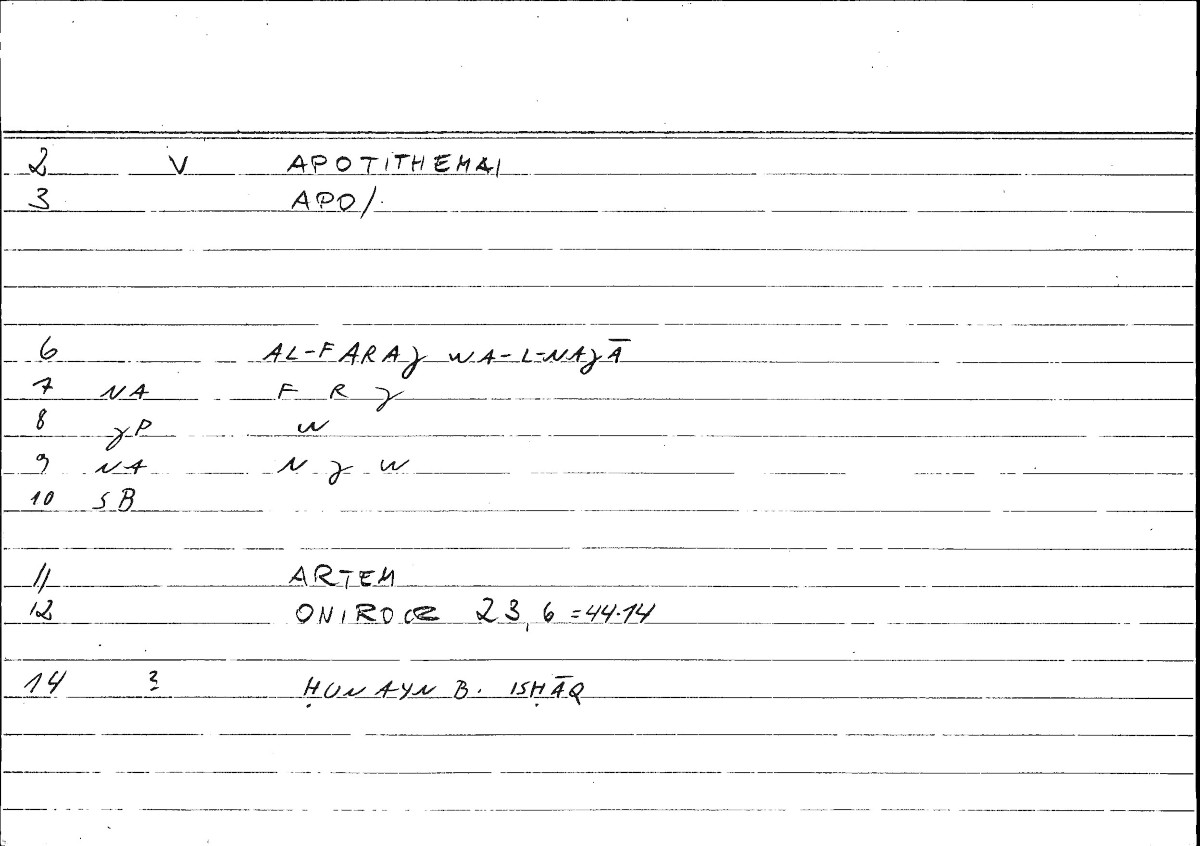 2 V APOTITHEMAI
3 APO/.
6 AL-FARAȜ WA-L-NAȜĀ
7 NA F R Ȝ
8 ȜP W
9 NA N Ȝ W
10 SB
11 ARTEM
12 ONIROCR 23,6 =44.14
14 ? ḤUNAYN B. ISḤĀQ